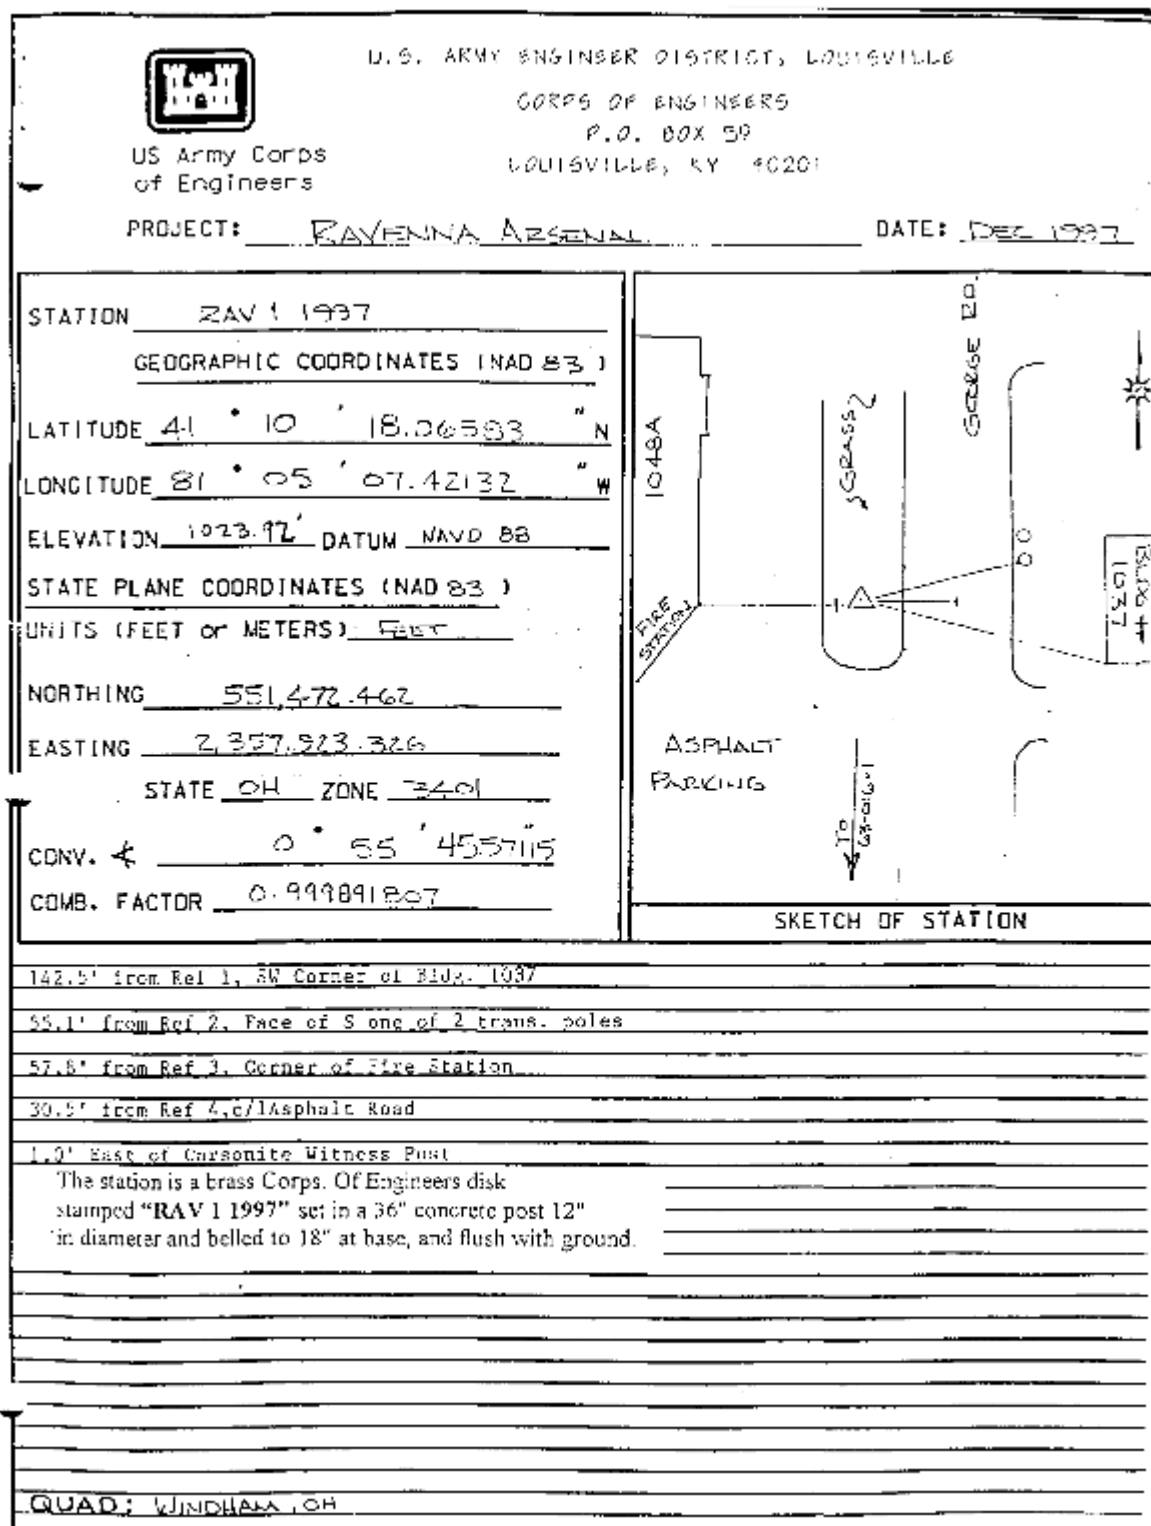 U.S. ARMY ENGINEER DISTRICT, LOUISVILLE
CORPS OF ENGINEERS
P.O. BOX 59
LOUISVILLE, KY 40201
US Army Corps
of Engineers
PROJECT: RAVENNA ARSENAL
DATE: DEC 1997
STATION RAV 1 1997
GEOGRAPHIC COORDINATES (NAD 83)
LATITUDE 41 ° 10 ' 18.06583 " N
LONGITUDE 81 ° 05 ' 07.42132 " W
ELEVATION 1023.92' DATUM NAVD 88
STATE PLANE COORDINATES (NAD 83)
UNITS (FEET or METERS) FEET
NORTHING 551,472.462
EASTING 2,357,923.326
STATE OH ZONE 3401
CONV. ∢ 0 ° 55 '
COMB. FACTOR 0.999891807
1048A
GRASS
GEORGE RD.
BLDG #
1037
FIRE
STATION
ASPHALT
PARKING
To
SKETCH OF STATION
142.5' from Ref 1, SW Corner of Bldg. 1037
55.1' from Ref 2, Face of S one of 2 trans. poles
57.8' from Ref 3, Corner of Fire Station
30.5' from Ref 4,c/lAsphalt Road
1.0' East of Carsonite Witness Post
The station is a brass Corps. Of Engineers disk
stamped "RAV 1 1997" set in a 36" concrete post 12"
in diameter and belled to 18" at base, and flush with ground.
QUAD: WINDHAM, OH